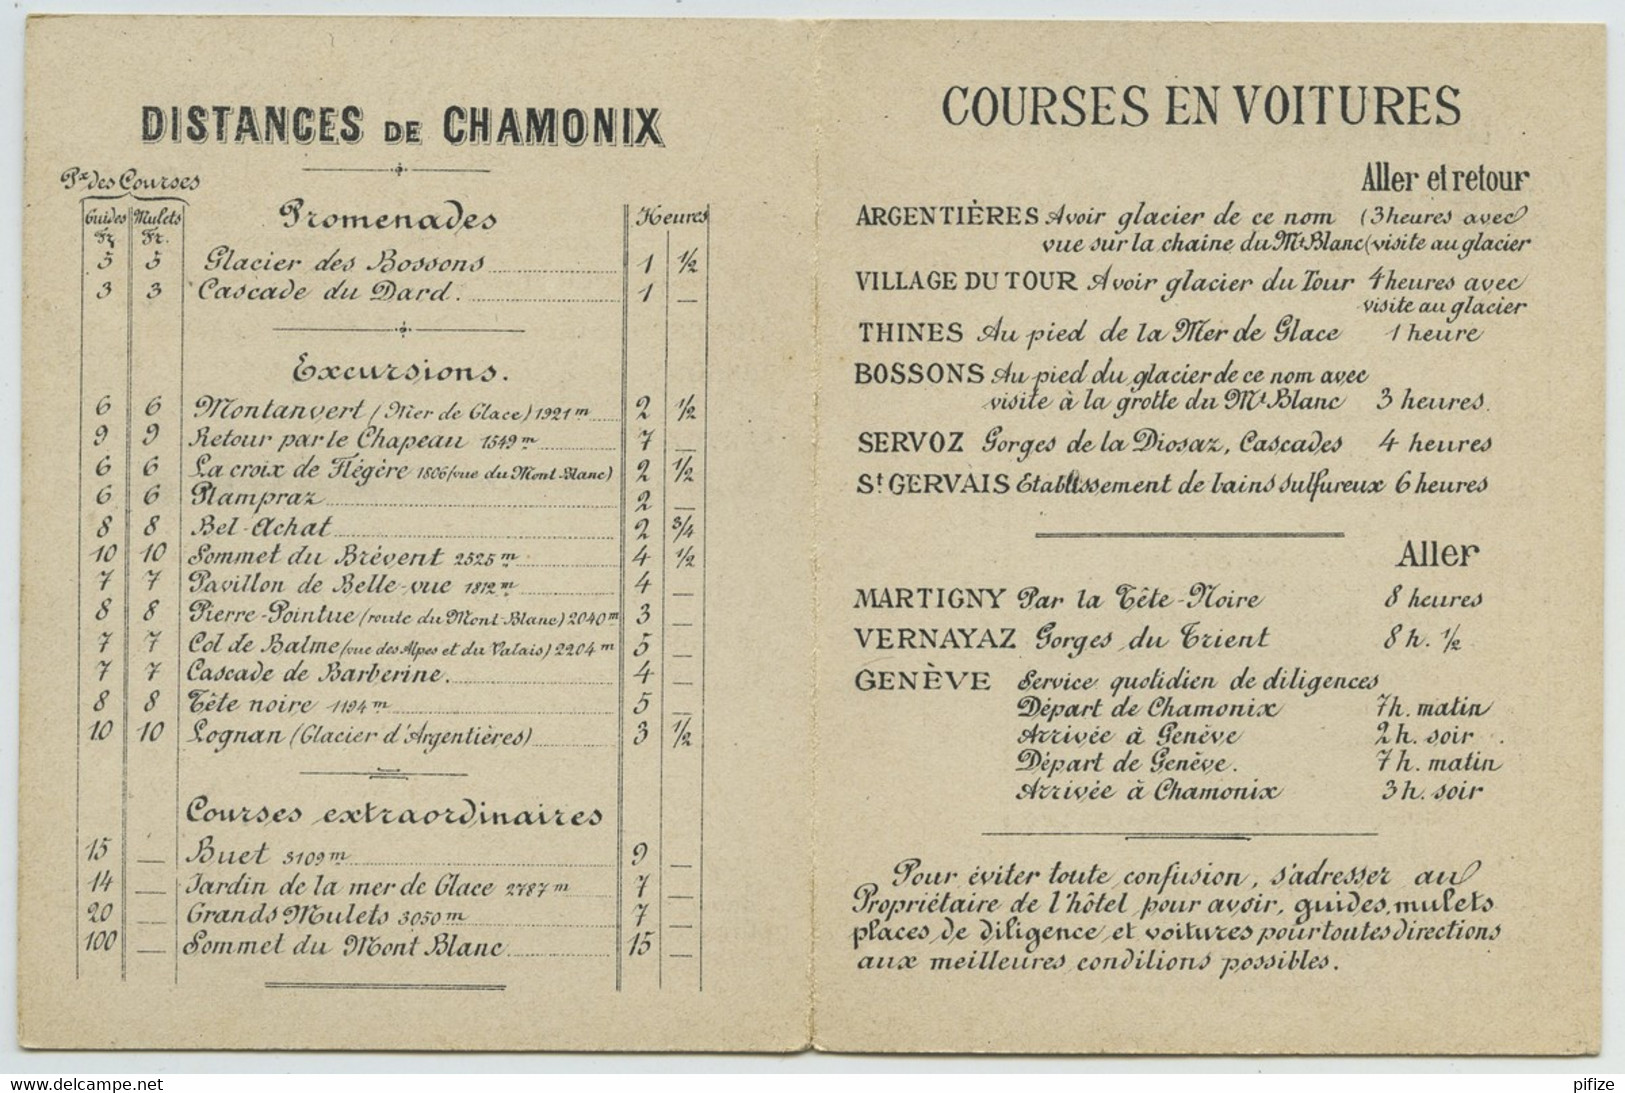 DISTANCES DE CHAMONIX
Px des Courses
Guides Mulets Promenades Heures
Fr. Fr.
5 5 Glacier des Bossons 1 1/2
3 3 Cascade du Dard. 1 —
Excursions.
6 6 Montanvert (Mer de Glace) 1921m 2 1/2
9 9 Retour par le Chapeau 1549m 7 —
6 6 La croix de Flégère 1806 (vue du Mont-Blanc) 2 1/2
6 6 Plampraz 2 —
8 8 Bel-Achat 2 3/4
10 10 Sommet du Brévent 2525m 4 1/2
7 7 Pavillon de Belle-vue 1812m 4 —
8 8 Pierre-Pointue (route du Mont-Blanc) 2040m 3 —
7 7 Col de Balme (vue des Alpes et du Valais) 2204m 5 —
7 7 Cascade de Barberine. 4 —
8 8 Tête noire 1194m 5 —
10 10 Lognan (Glacier d'Argentières) 3 1/2
Courses extraordinaires
15 — Buet 3109m 9 —
14 — Jardin de la mer de Glace 2787m 7 —
20 — Grands Mulets 3050m 7 —
100 — Sommet du Mont Blanc 15 —
COURSES EN VOITURES
Aller et retour
ARGENTIÈRES Avoir glacier de ce nom (3 heures avec
vue sur la chaine du Mt Blanc (visite au glacier
VILLAGE DU TOUR Avoir glacier du Tour 4 heures avec
visite au glacier
THINES Au pied de la Mer de Glace 1 heure
BOSSONS Au pied du glacier de ce nom avec
visite à la grotte du Mt Blanc 3 heures.
SERVOZ Gorges de la Diosaz, Cascades 4 heures
St GERVAIS Etablissement de bains sulfureux 6 heures
Aller
MARTIGNY Par la Tête-Noire 8 heures
VERNAYAZ Gorges du Trient 8 h. 1/2
GENÈVE Service quotidien de diligences
Départ de Chamonix 7h. matin
Arrivée à Genève 2h. soir
Départ de Genève. 7h. matin
Arrivée à Chamonix 3h. soir
Pour éviter toute confusion, s'adresser au
Propriétaire de l'hôtel pour avoir, guides, mulets
places de diligence et voitures pour toutes directions
aux meilleures conditions possibles.
www.delcampe.net
pifize